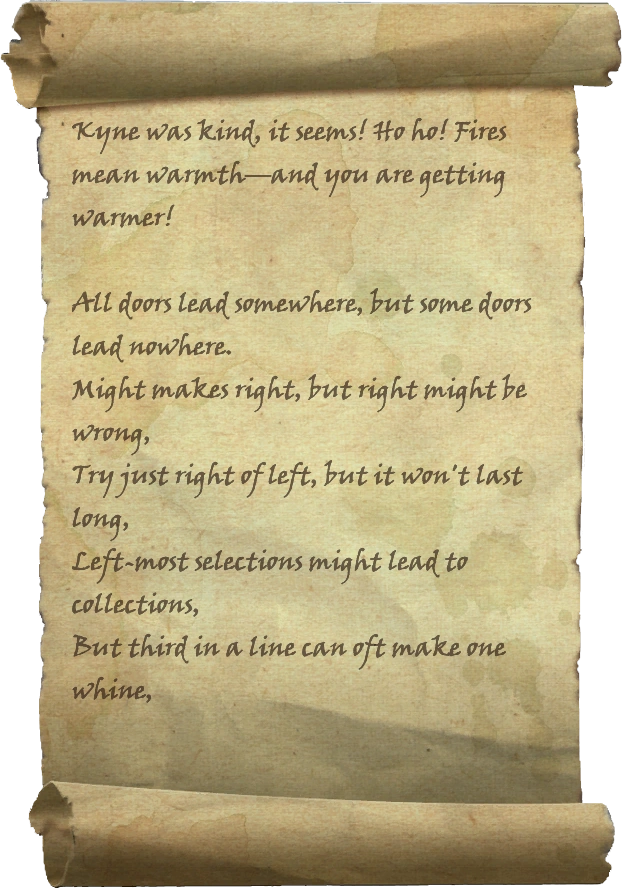 Kyne was kind, it seems! Ho ho! Fires
mean warmth—and you are getting
warmer!
All doors lead somewhere, but some doors
lead nowhere.
Might makes right, but right might be
wrong,
Try just right of left, but it won't last
long,
Left-most selections might lead to
collections,
But third in a line can oft make one
whine,